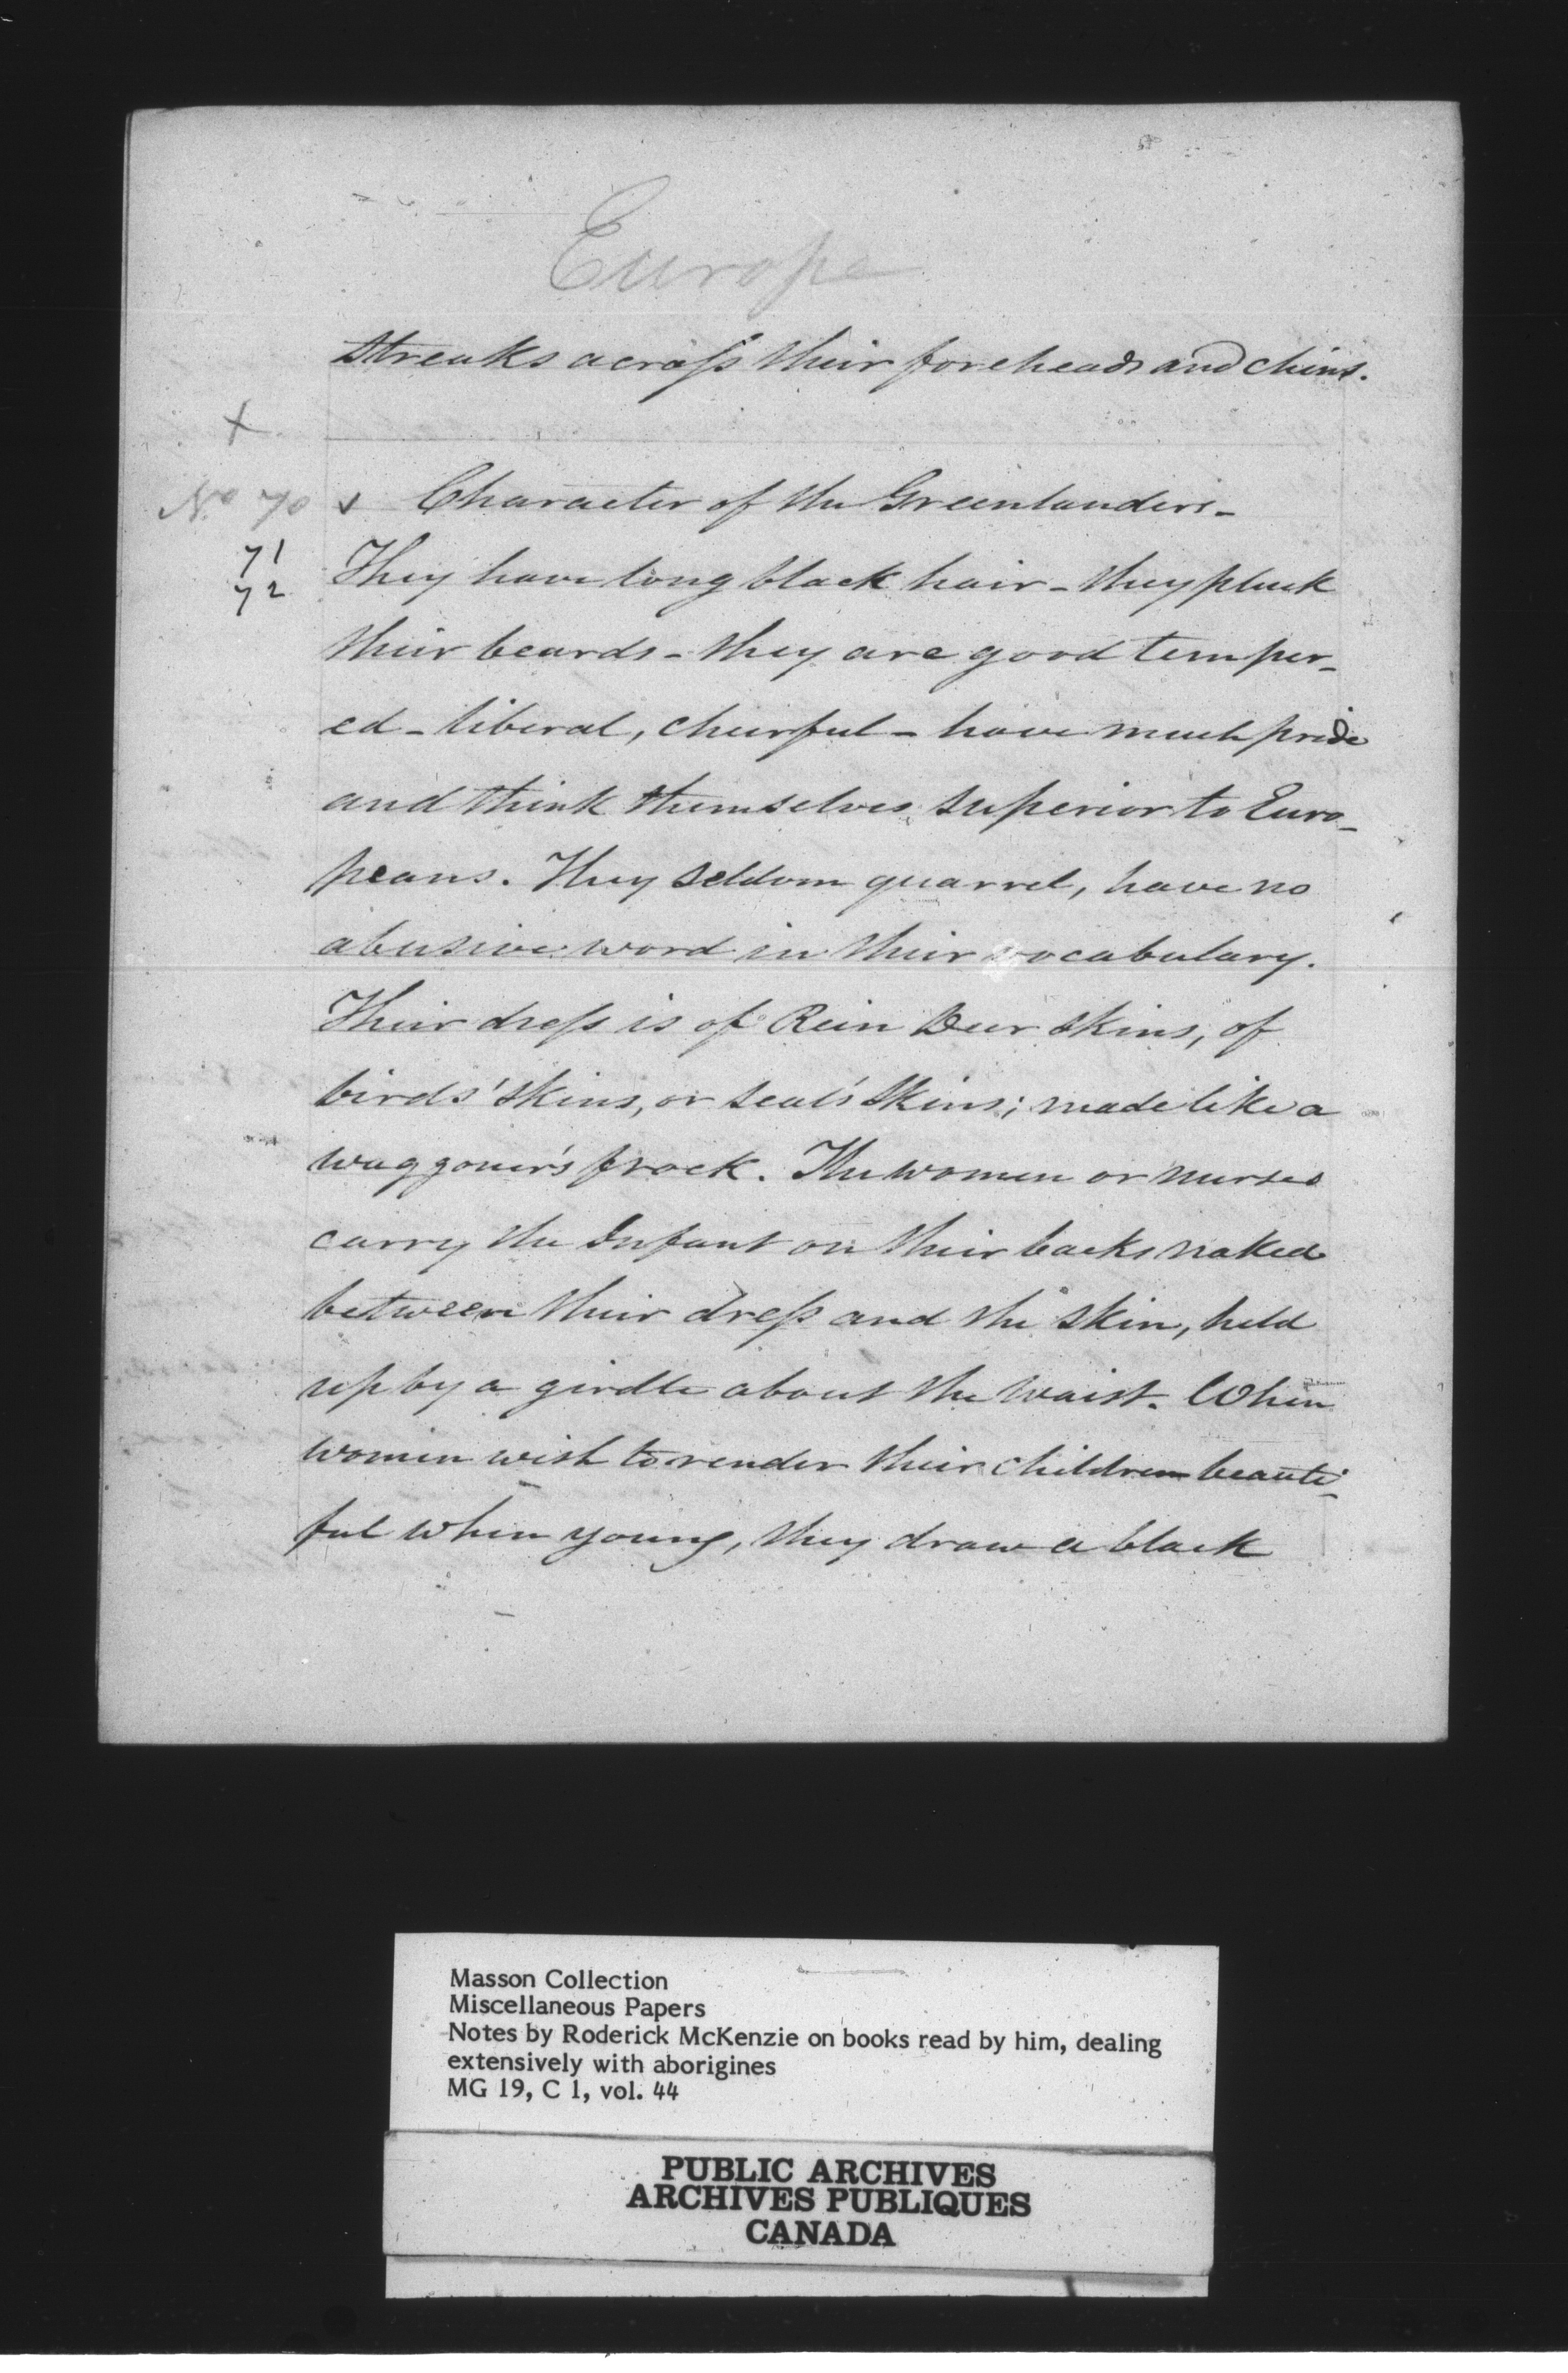 Europe
streaks across their foreheads and chins.
+
No 70 v Character of the Greenlanders-
71 They have long black hair - they pluck
72
their beards - they are good temper-
ed - liberal, cheerful - have much pride
and think themselves superior to Euro-
peans. They seldom quarrel, have no
abusive word in their vocabulary.
Their dress is of Rein Deer skins, of
birds' skins, or seals' skins; made like a
waggoner's frock. The women or nurses
carry the Infant on their backs naked
between their dress and the skin, held
up by a girdle about the waist. When
women wish to render their children beauti-
ful when young, they draw a black
Masson Collection
Miscellaneous Papers
Notes by Roderick McKenzie on books read by him, dealing
extensively with aborigines
MG 19, C 1, vol. 44
PUBLIC ARCHIVES
ARCHIVES PUBLIQUES
CANADA